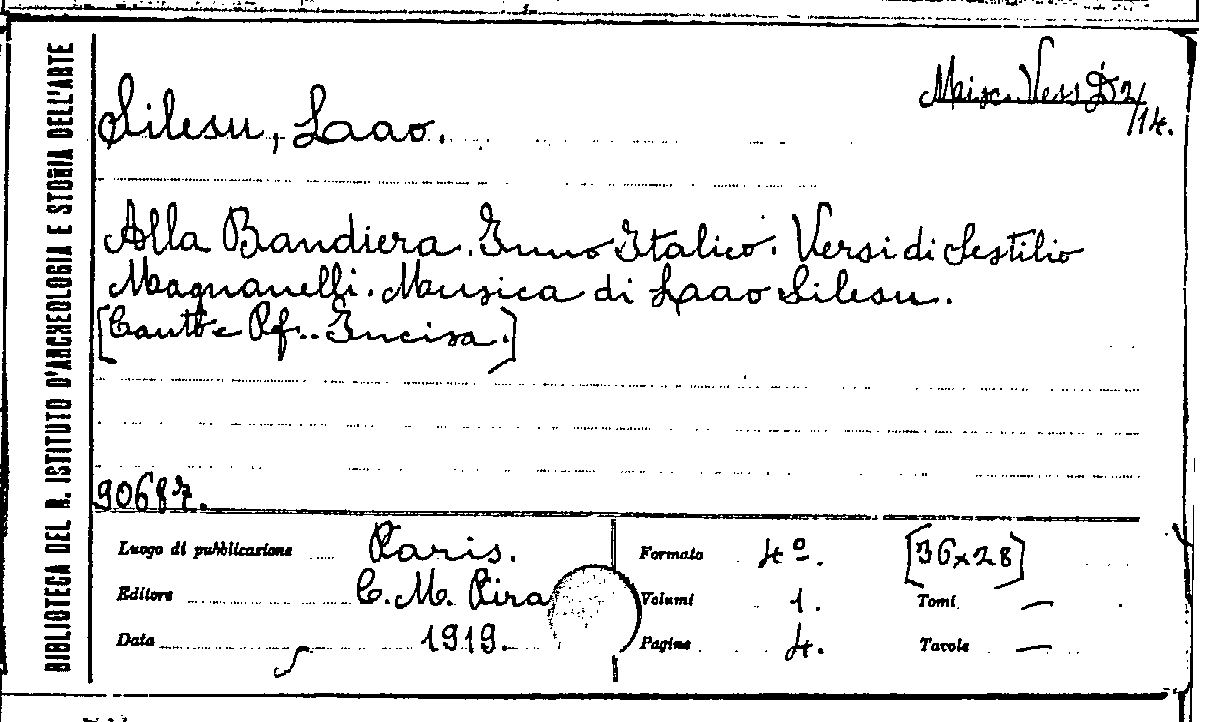 BIBLIOTECA DEL R. ISTITUTO D'ARCHEOLOGIA E STORIA DELL'ARTE
Misc. Vess D2/14.
Silesu, Lao.
Alla Bandiera. Inno Italico. Versi di Sestilio
Magnanelli. Musica di Lao Silesu.
[Canto e Pf.. Incisa.]
90687.
Luogo di pubblicazione Paris.
Editore C. M. Pira
Data 1919.
Formato 4º. [36x28]
Volumi 1. Tomi —
Pagine 4. Tavole —